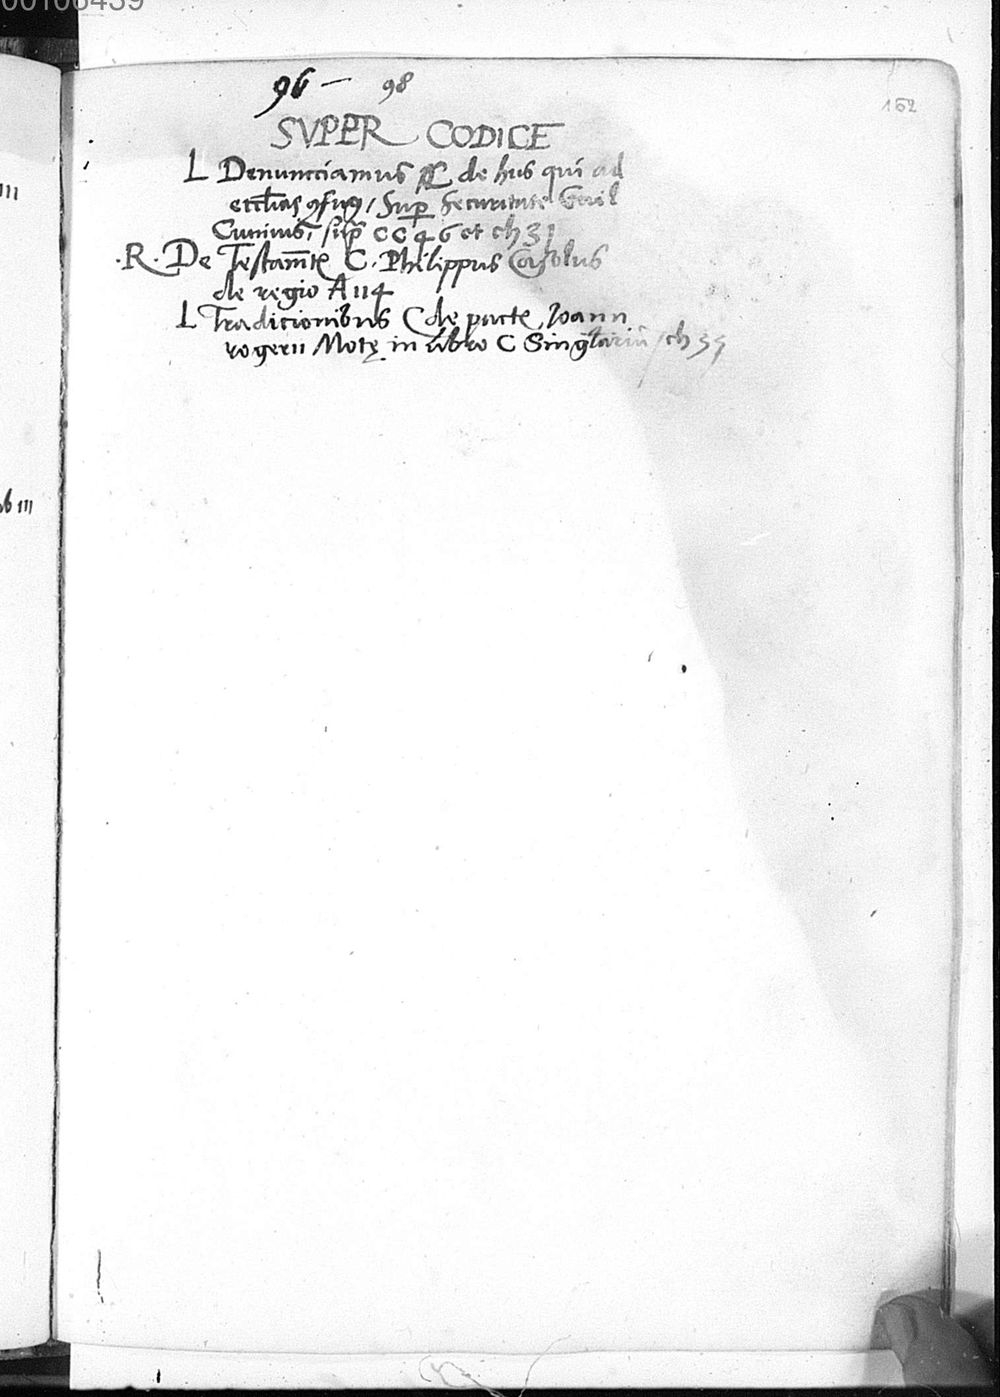 00106439
96 — 98
152
SVPER CODICE
L Denunciamus de his qui ad
eccl̄ias ꝯfug, Sup̱ securitate
Cumius, sup̱ CC 46 et ch 31
.R. De Testam̄tꝭ C. Philippus Casolus
de regio A 114
L Traditionibus C de pactꝭ, Ioann
rogerii Motę in libro C Singlariū ch 35
III
b III